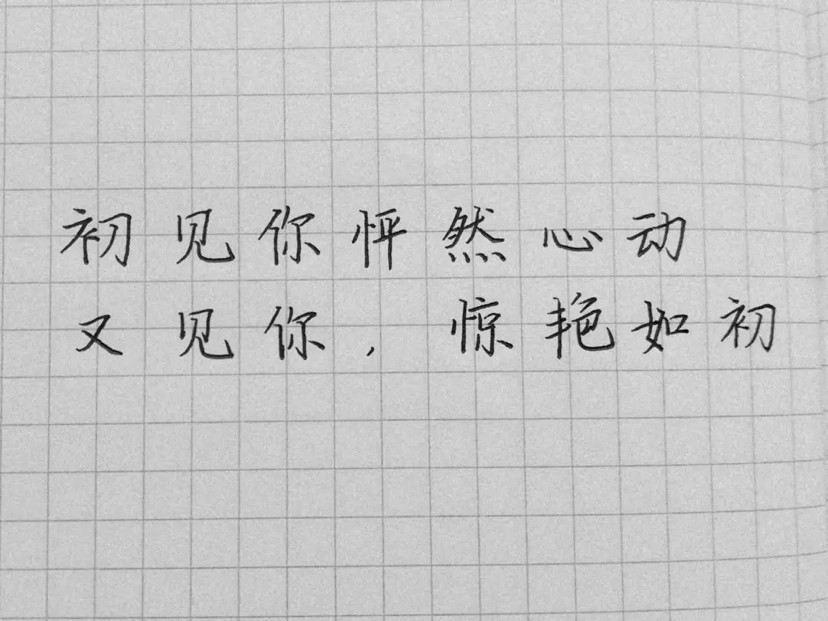 初见你怦然心动
又见你，惊艳如初